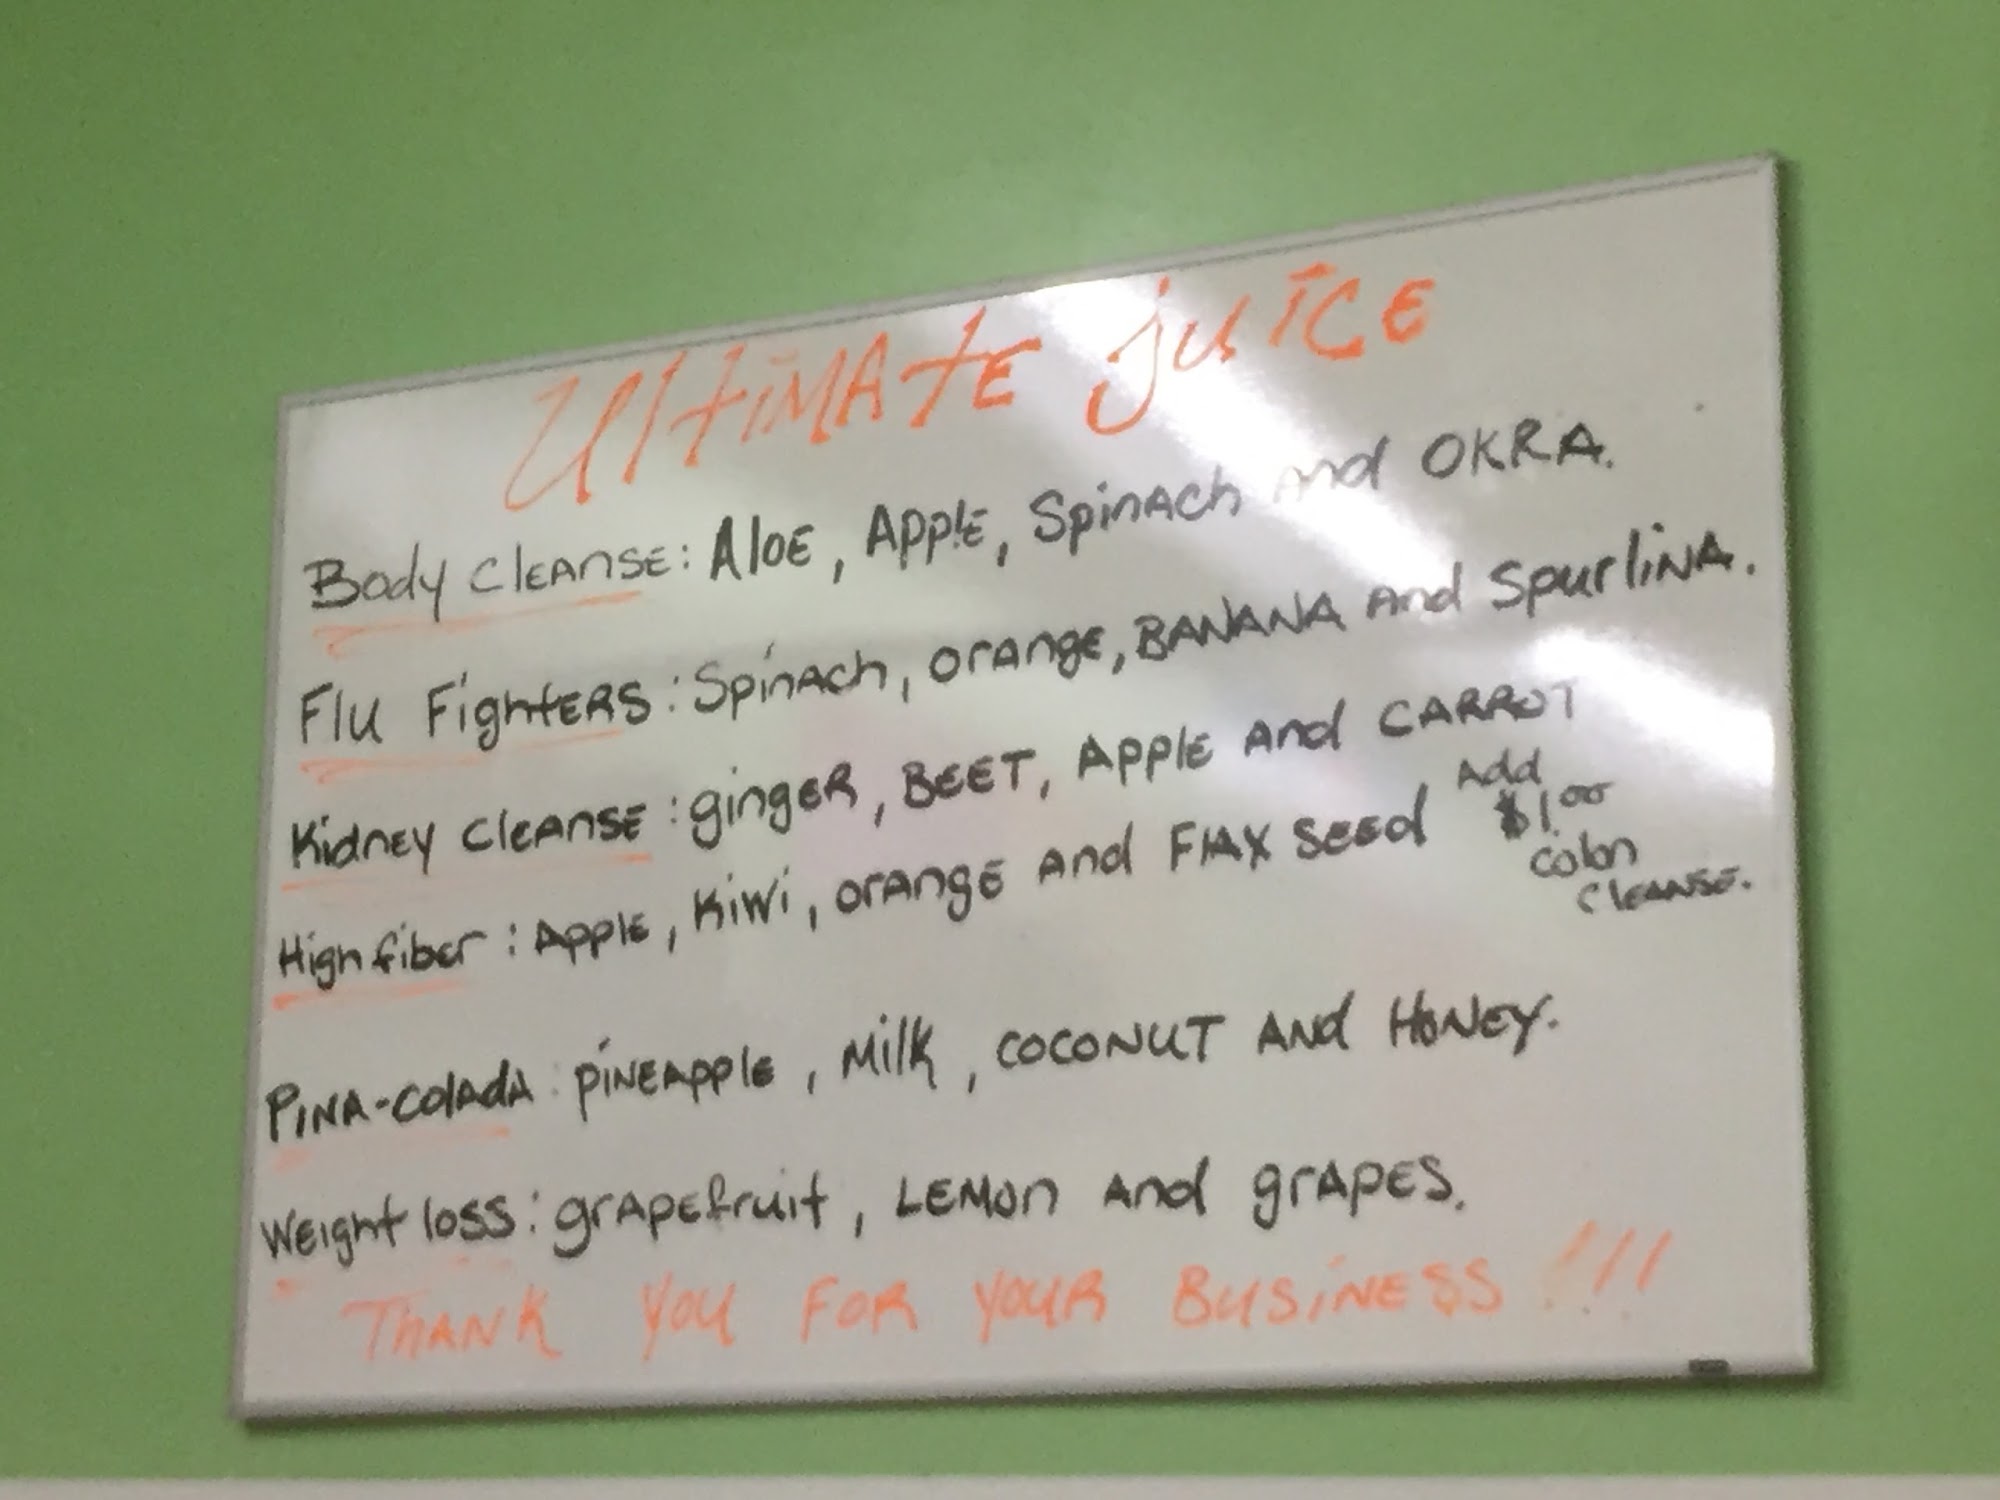 Ultimate juice
Body Cleanse: Aloe, Apple, Spinach and OKRA.
Flu Fighters: Spinach, orange, BANANA and Spurlina.
Kidney Cleanse: ginger, BEET, Apple and CARROT
High fiber: Apple, Kiwi, orange and Flax seed
Add
$1.00
colon
cleanse.
Pina-colada: pineapple, Milk, COCONUT and HONEY.
Weight loss: grapefruit, Lemon and grapes.
THANK YOU FOR YOUR BUSINESS!!!